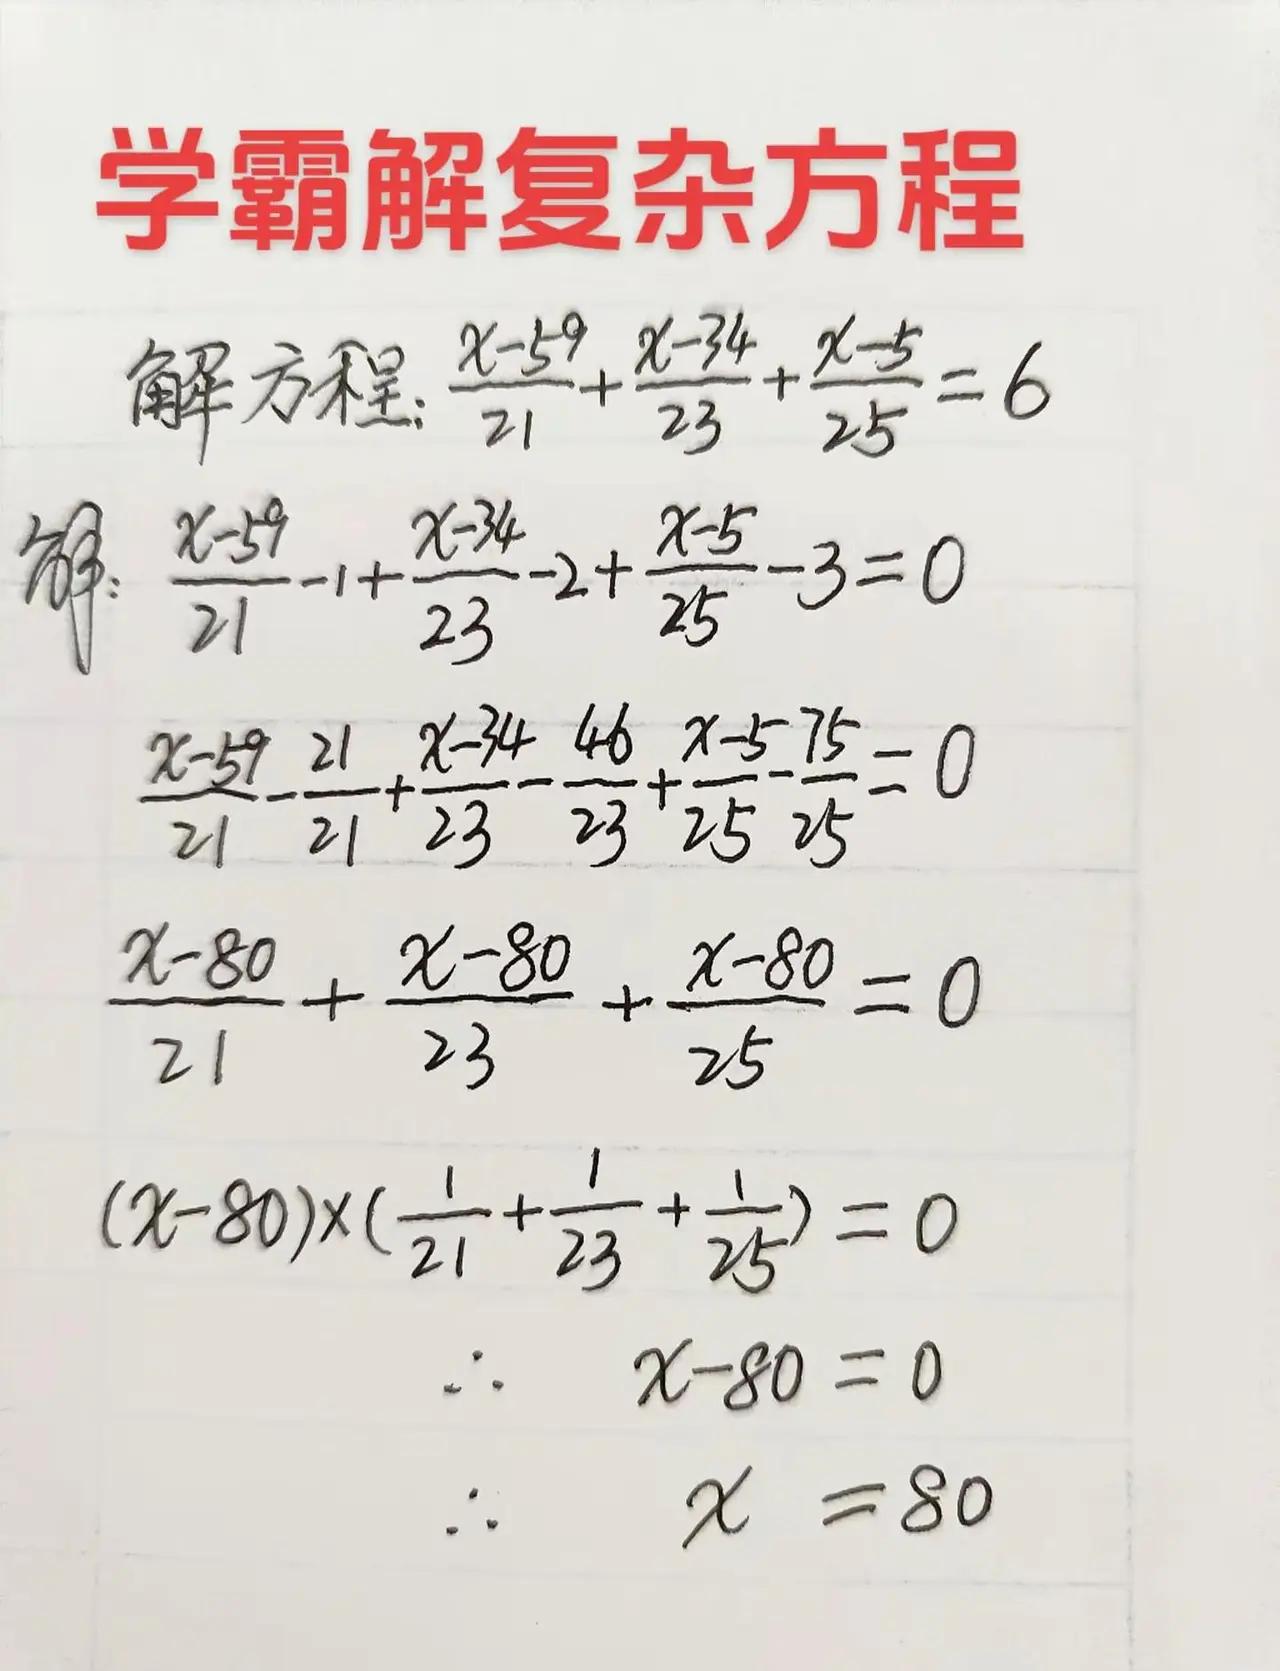 学霸解复杂方程
解方程: \frac{x-59}{21}+\frac{x-34}{23}+\frac{x-5}{25}=6
解: \frac{x-59}{21}-1+\frac{x-34}{23}-2+\frac{x-5}{25}-3=0
\frac{x-59}{21}-\frac{21}{21}+\frac{x-34}{23}-\frac{46}{23}+\frac{x-5}{25}-\frac{75}{25}=0
\frac{x-80}{21}+\frac{x-80}{23}+\frac{x-80}{25}=0
(x-80)×(\frac{1}{21}+\frac{1}{23}+\frac{1}{25})=0
∴ x-80=0
∴ x=80